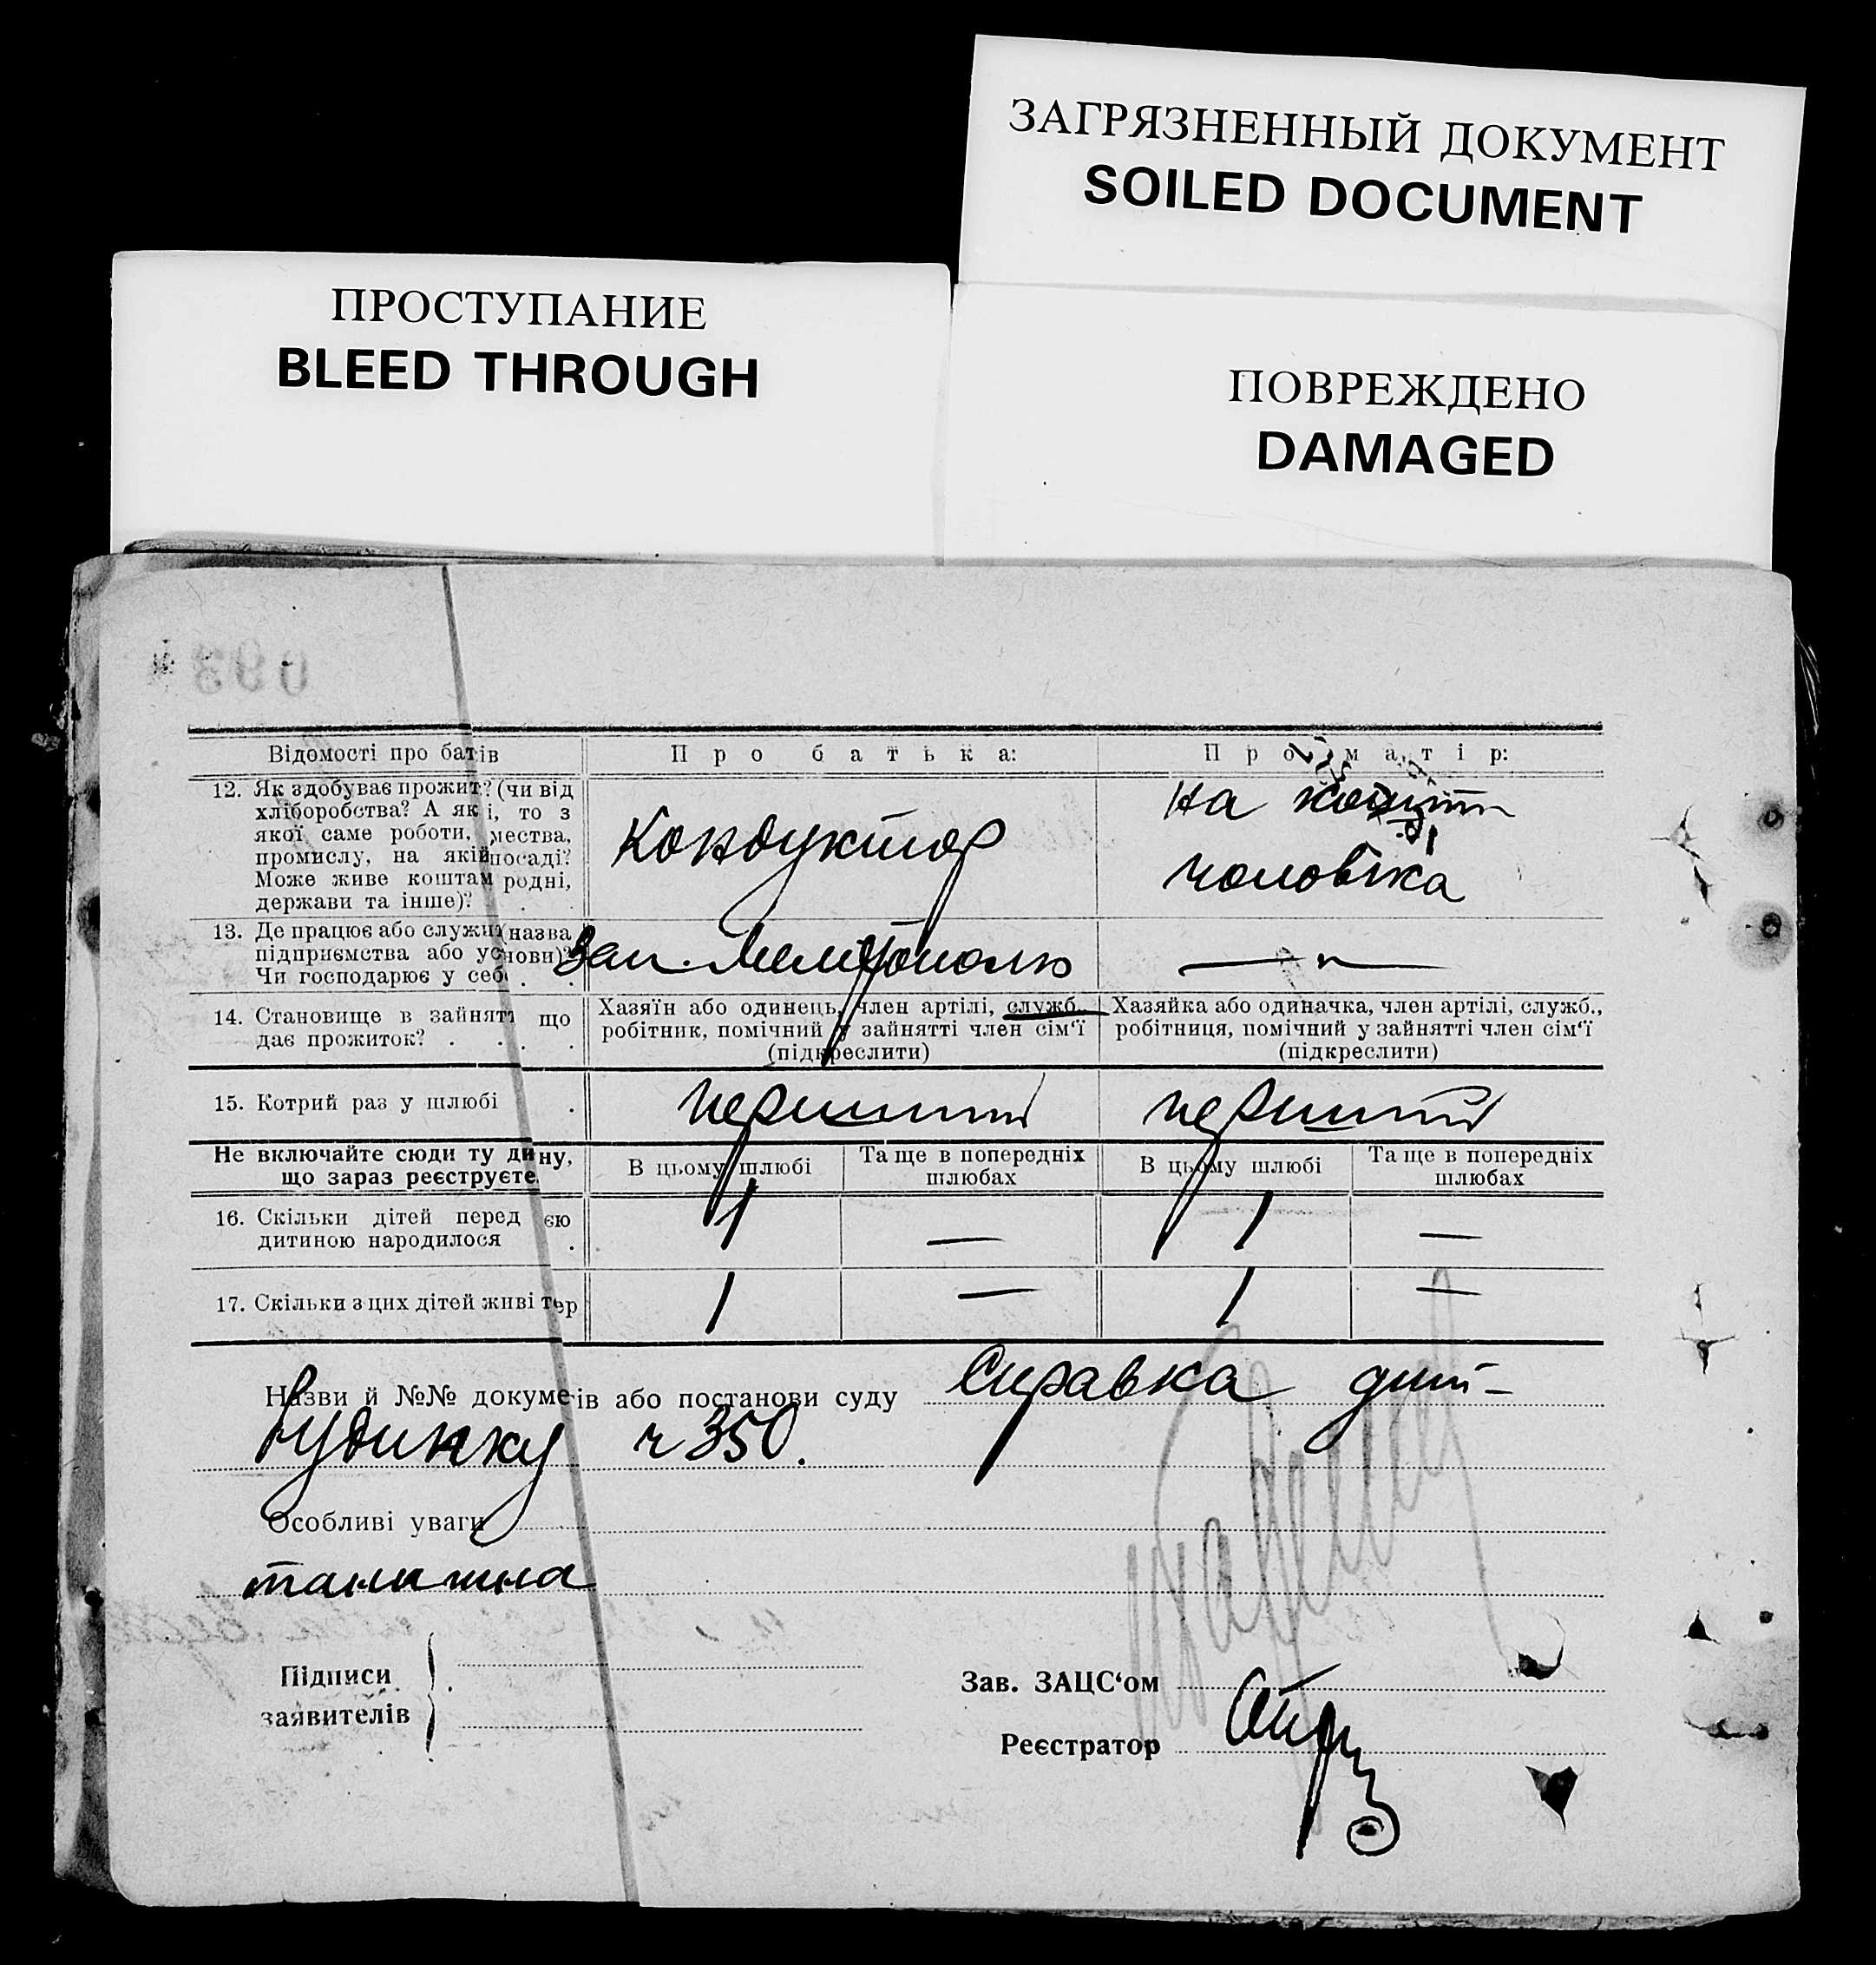 ЗАГРЯЗНЕННЫЙ ДОКУМЕНТ
SOILED DOCUMENT
ПРОСТУПАНИЕ
BLEED THROUGH
ПОВРЕЖДЕНО
DAMAGED
Відомості про батів
Про батька:
Про матір:
12. Як здобуває прожит? (чи від
хліборобства? А як і, то з
якої саме роботи, мества,
промислу, на якій посаді?
Може живе коштам родні,
держави та інше)? . .
Кондуктор
на кошти
чоловіка
13. Де працює або служит (назва
підприємства або уснови)?
Чи господарює у себе . .
Зал. Мелітополь
— " —
14. Становище в зайнятт що
дає прожиток? . . . .
Хазяїн або одинець, член артілі, служб.,
робітник, помічний у зайнятті член сім‘ї
(підкреслити)
Хазяйка або одиначка, член артілі, служб.,
робітниця, помічний у зайнятті член сім‘ї
(підкреслити)
15. Котрий раз у шлюбі .
перший
перший
Не включайте сюди ту дину,
що зараз реєструєте.
В цьому шлюбі
Та ще в попередніх
шлюбах
В цьому шлюбі
Та ще в попередніх
шлюбах
16. Скільки дітей перед єю
дитиною народилося .
1 — 1 —
17. Скільки з цих дітей живі тер
1 — 1 —
Назви й №№ докумеів або постанови суду Справка дит-
будинку ч 350.
Особливі уваги
Підписи
заявителів
Зав. ЗАЦС‘ом
Реєстратор